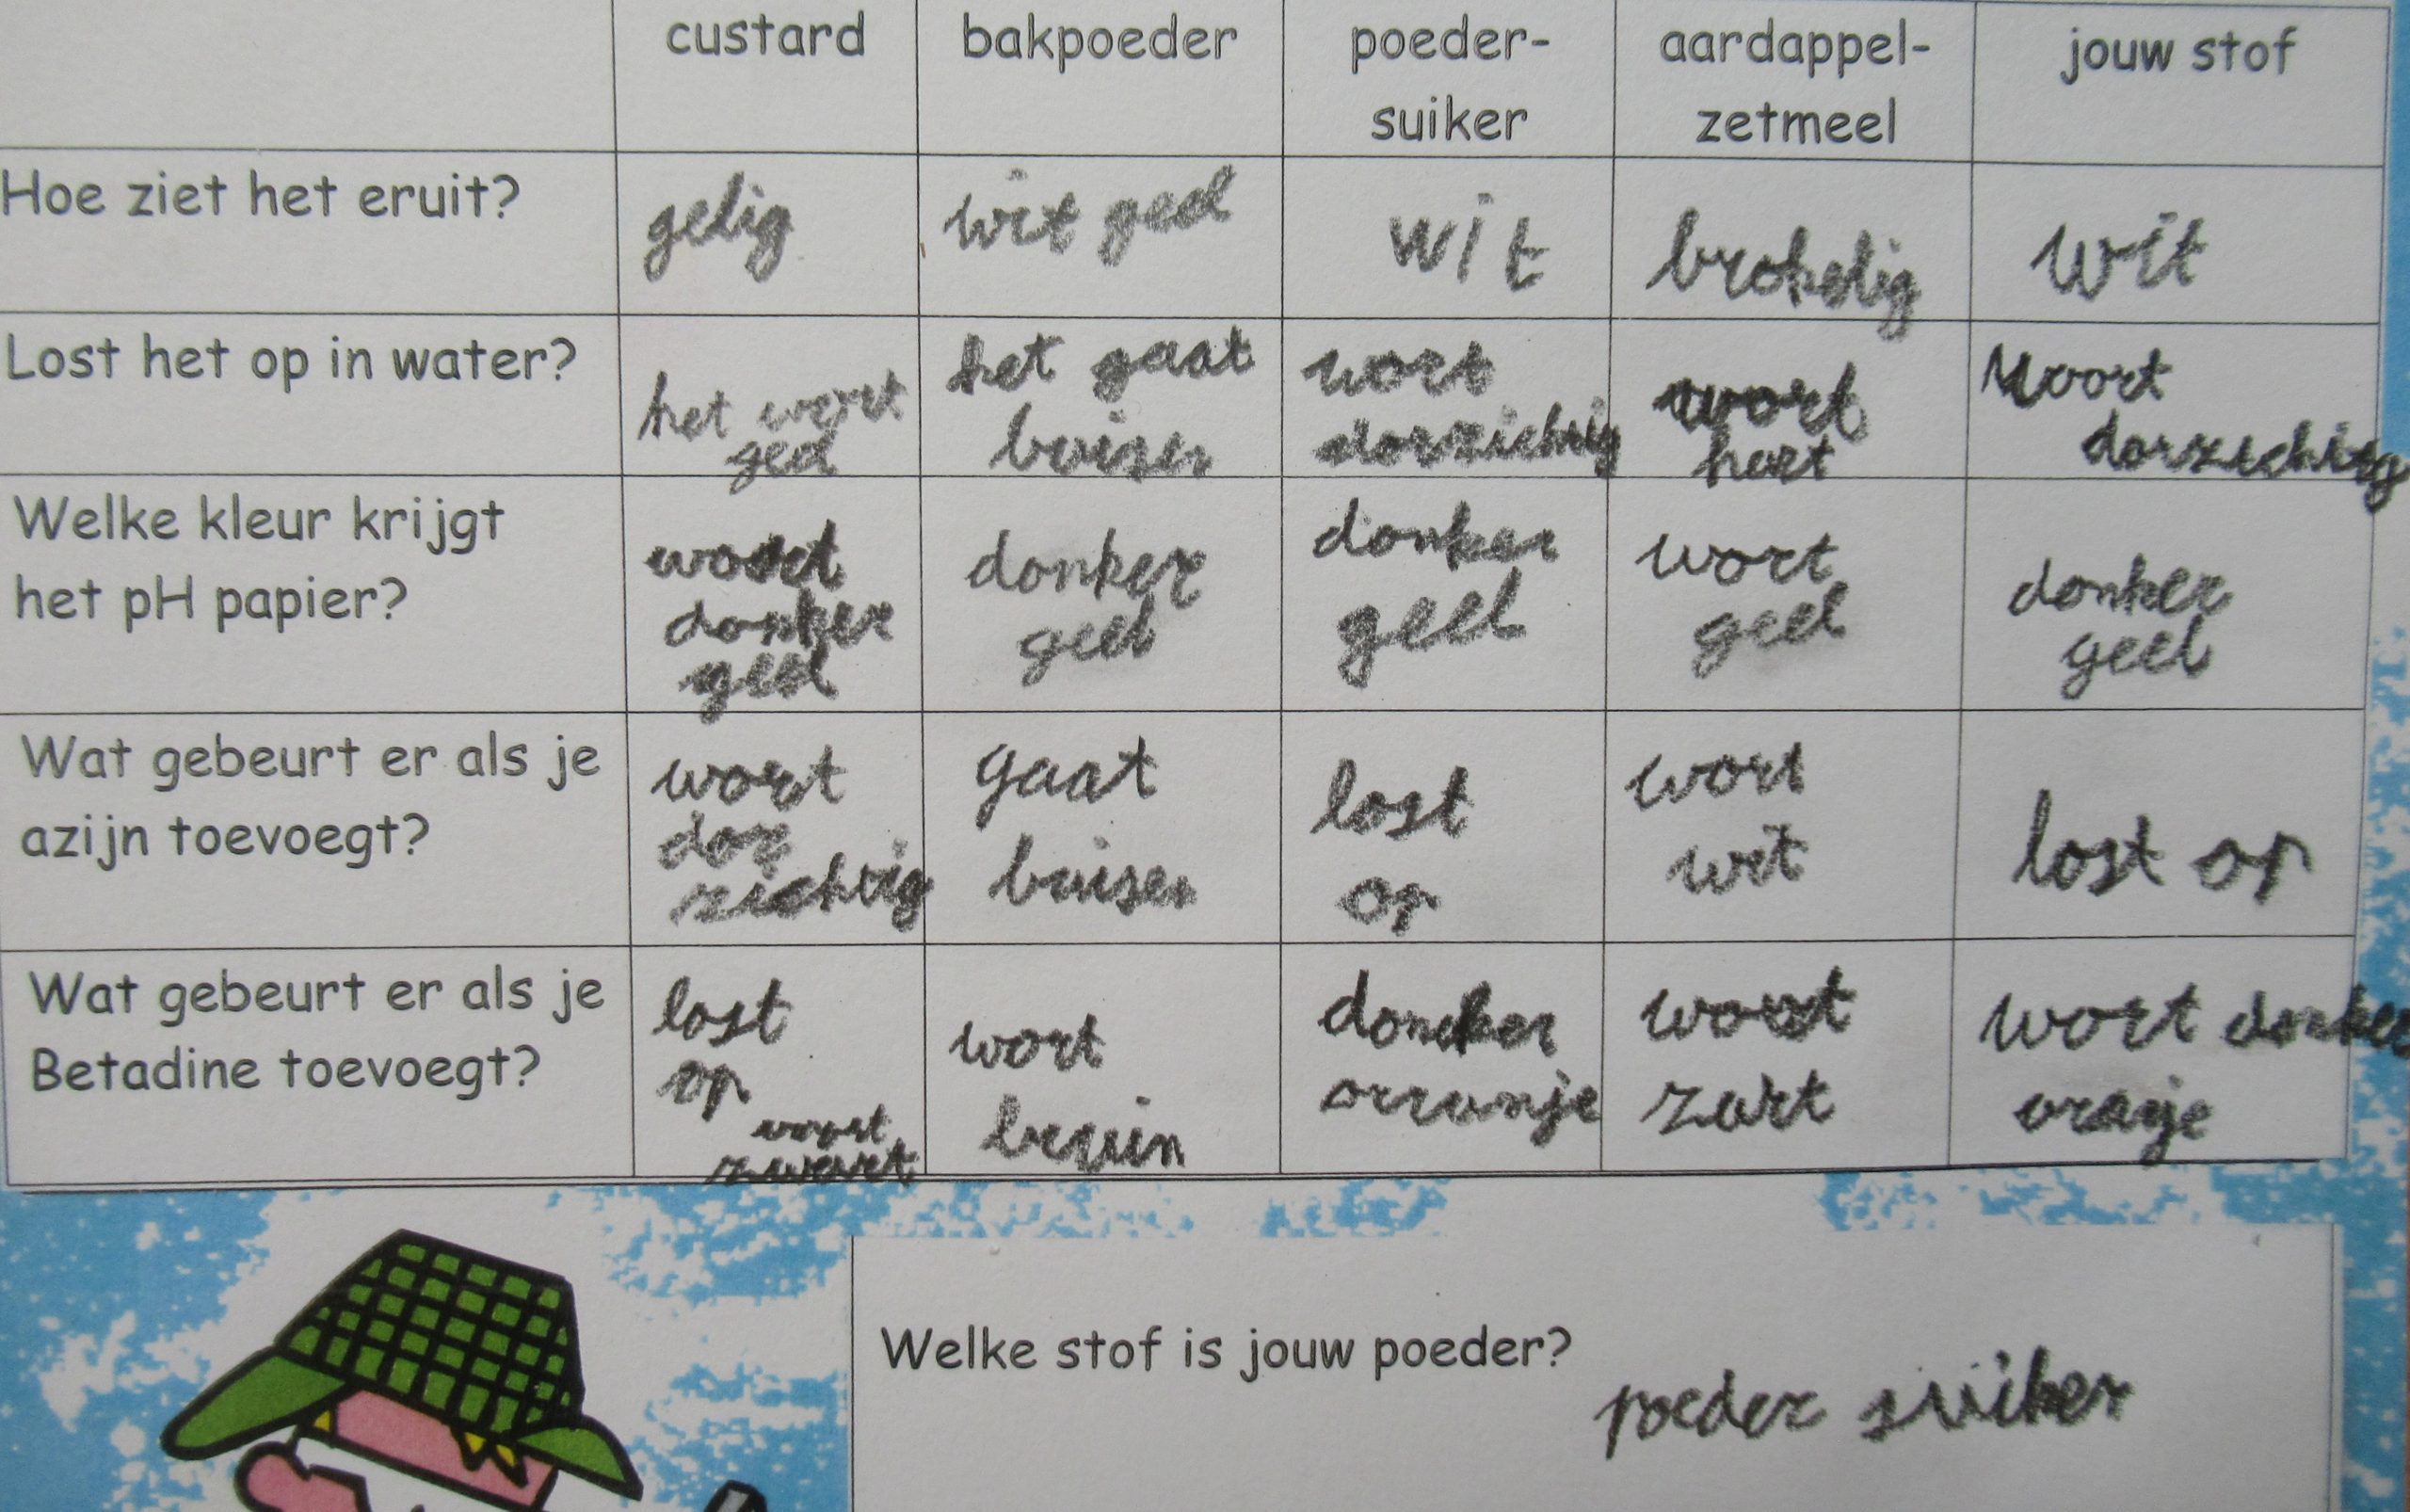 custard bakpoeder poeder- aardappel- jouw stof
suiker zetmeel
Hoe ziet het eruit? gelig wit geel wit brokelig wit
Lost het op in water? het wort geel
het gaat bruisen
wort dorzichtig
wort hart
Woort dorzichtig
Welke kleur krijgt
het pH papier?
woort donker geel
donker geel
donker geel
wort geel
donker geel
Wat gebeurt er als je
azijn toevoegt?
wort dor zichtig
gaat bruisen
lost op
wort wit
lost op
Wat gebeurt er als je
Betadine toevoegt?
lost op woort zwart
wort bruin
doncker orranje
woort zart
wort donker oranje
Welke stof is jouw poeder?
poeder suiker